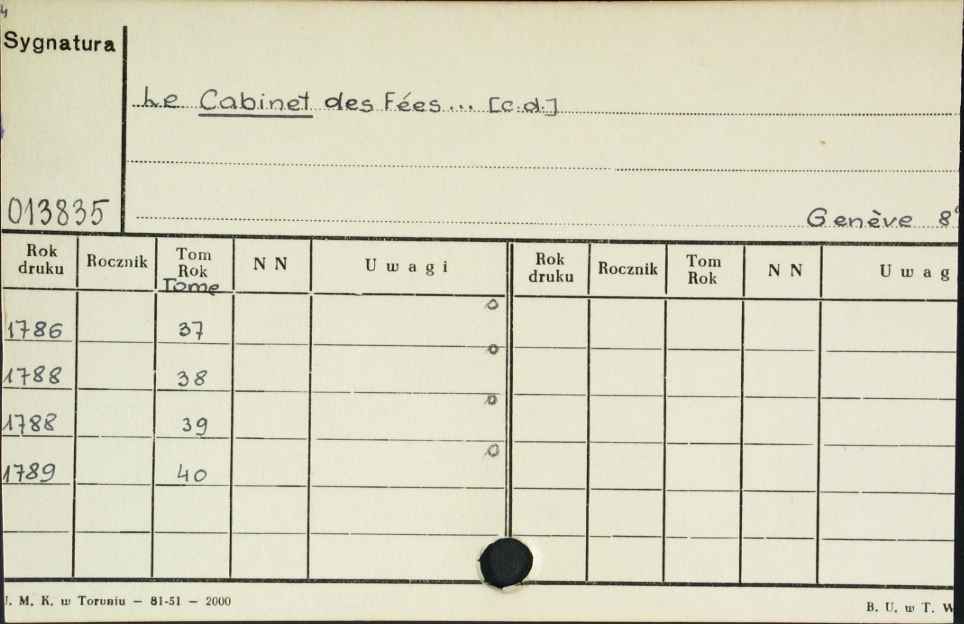 4
Sygnatura
Le Cabinet des Fées... [c.d.]
013835
Genève 8°
Rok druku Rocznik Tom Rok Tome N N Uwagi Rok druku Rocznik Tom Rok N N Uwag
1786 37
1788 38
1788 39
1789 40
J. M. K. w Toruniu — 81-51 — 2000
B. U. w T. W